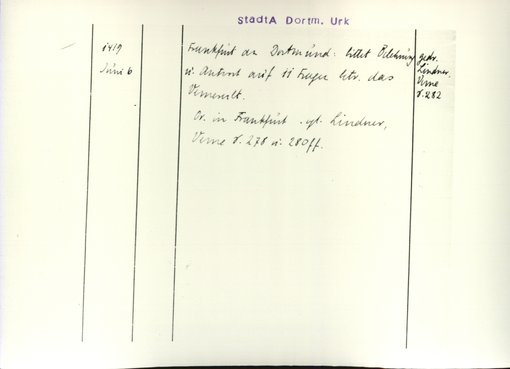 StadtA Dortm. Urk
1419
Juni 6
Frankfurt an Dortmund: bittet Belehrung
u. Antwort auf 11 Fragen betr. das
Vemerecht.
Or. in Frankfurt. vgl. Lindner,
Veme S. 278 u. 280 ff.
gedr.
Lindner
Veme
S. 282